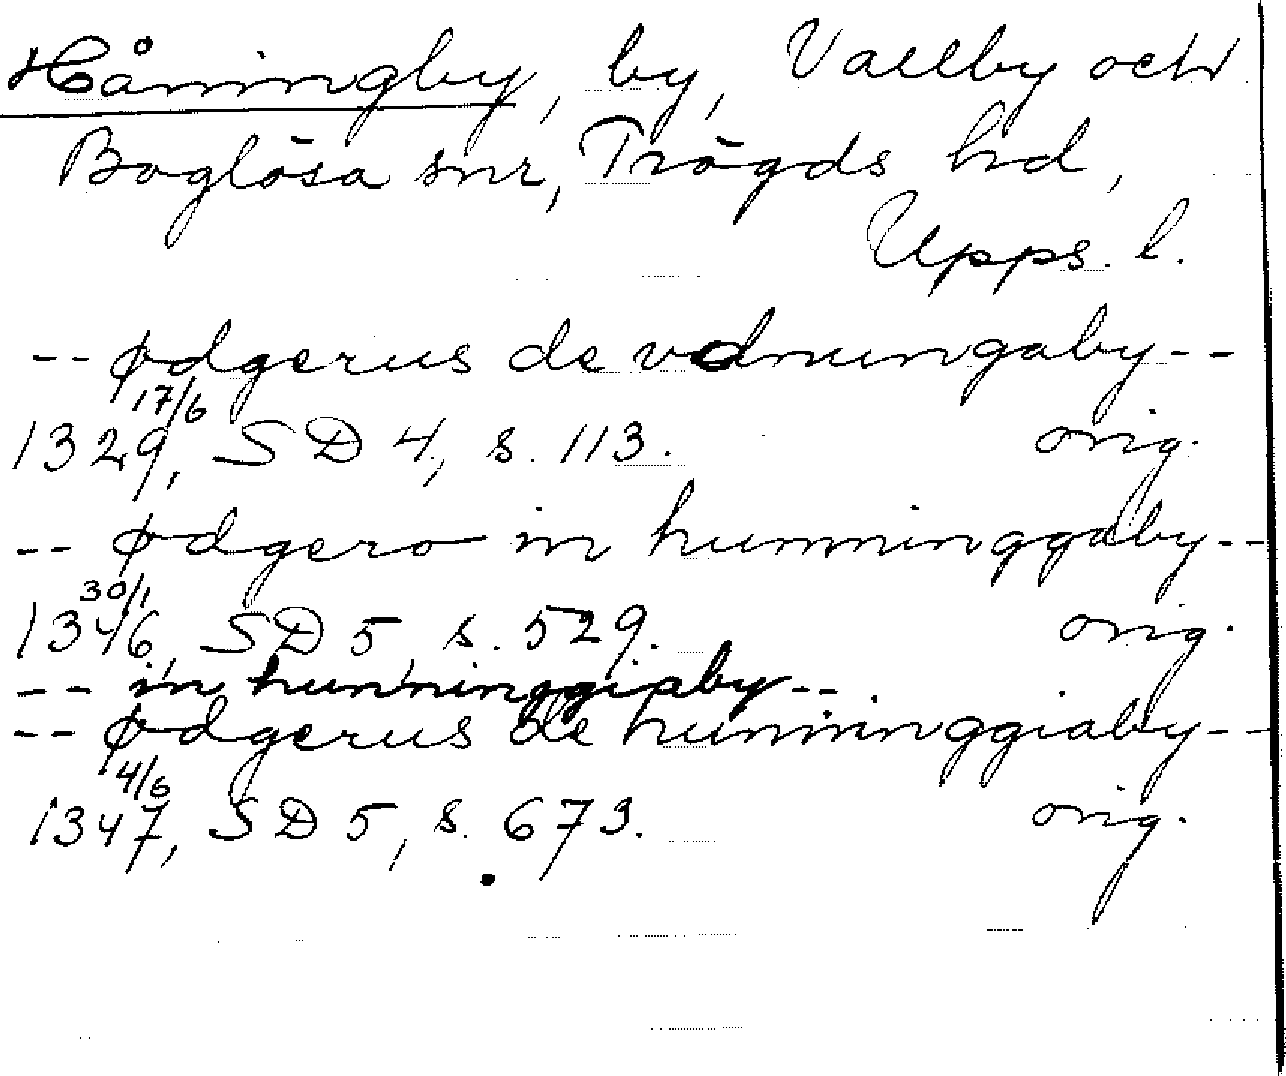 Håningby, by, Vallby och
Boglösa snr, Trögds hd,
Upps. l.
-- ødgerus de vdnungaby --
17/6
1329, SD 4, s. 113. orig.
-- ødgero in hunninggaby --
30/1
1346, SD 5, s. 529. orig.
-- in hunninggiaby --
-- ødgerus de hunninggiaby --
4/6
1347, SD 5, s. 673. orig.